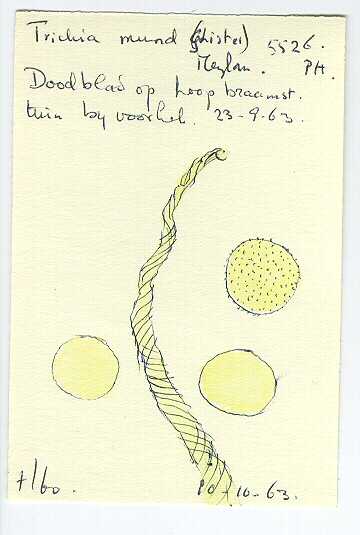 Trichia mund (Lister) 5526.
Meylan. PH.
Doodblad op hoop braamst.
tuin by voorhel. 23-9-63.
10-10-63.